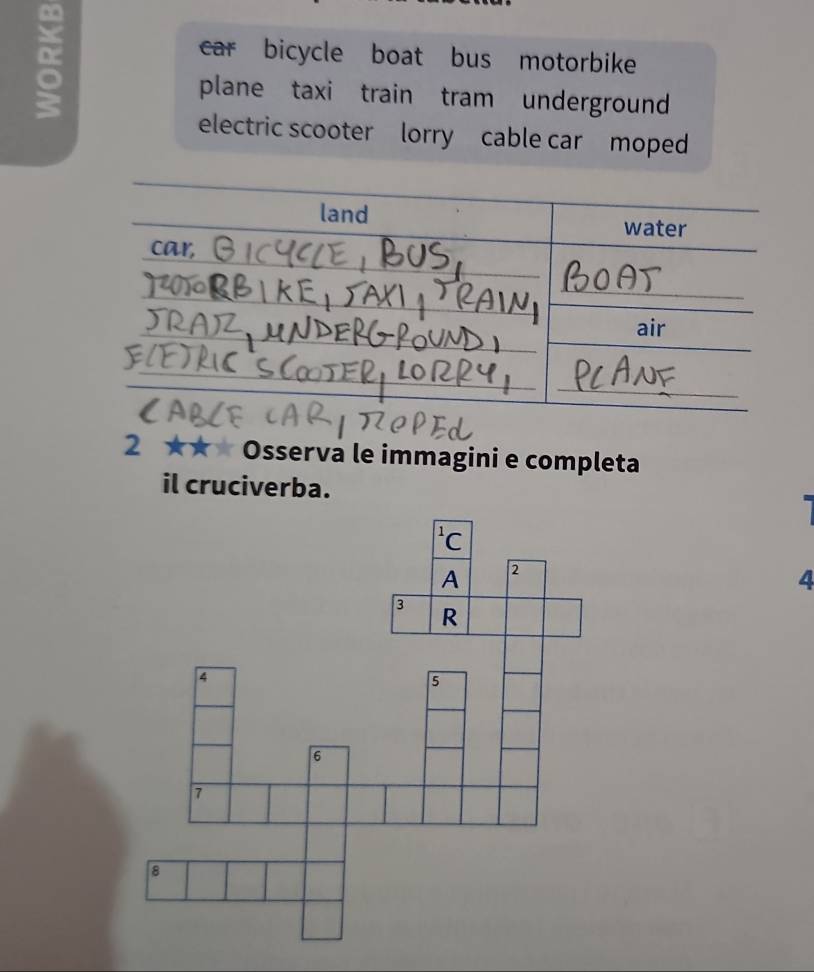 WORKB
car bicycle boat bus motorbike
plane taxi train tram underground
electric scooter lorry cable car moped
land
water
car, BICYCLE, BUS,
MOTORBIKE, TAXI, TRAIN,
BOAT
TRAM, UNDERGROUND,
air
ELETRIC SCOOTER, LORRY,
PLANE
CABLE CAR, MOPED
2 ★★★ Osserva le immagini e completa
il cruciverba.
1 C
A 2
3 R
4 5
6
7
8
4